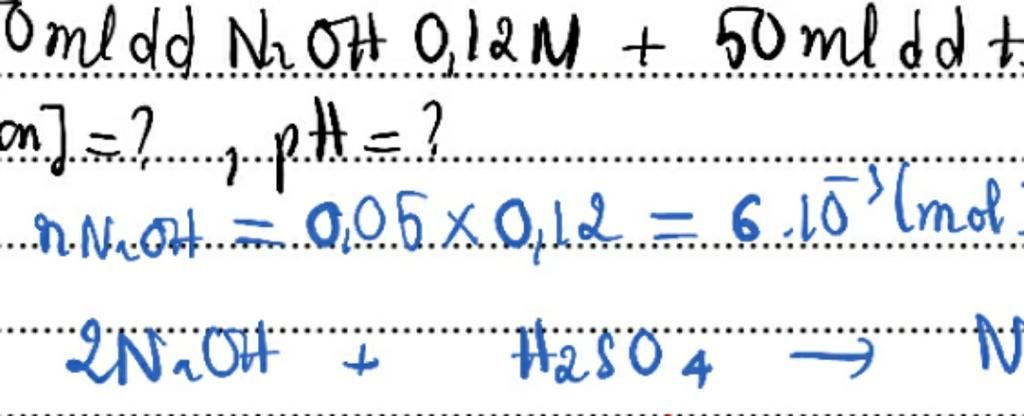 0ml dd NaOH 0,12M + 50ml dd t
on] = ? , pH = ?
nNaOH = 0,05 x 0,12 = 6.10⁻³ (mol
2NaOH + H2SO4 → N